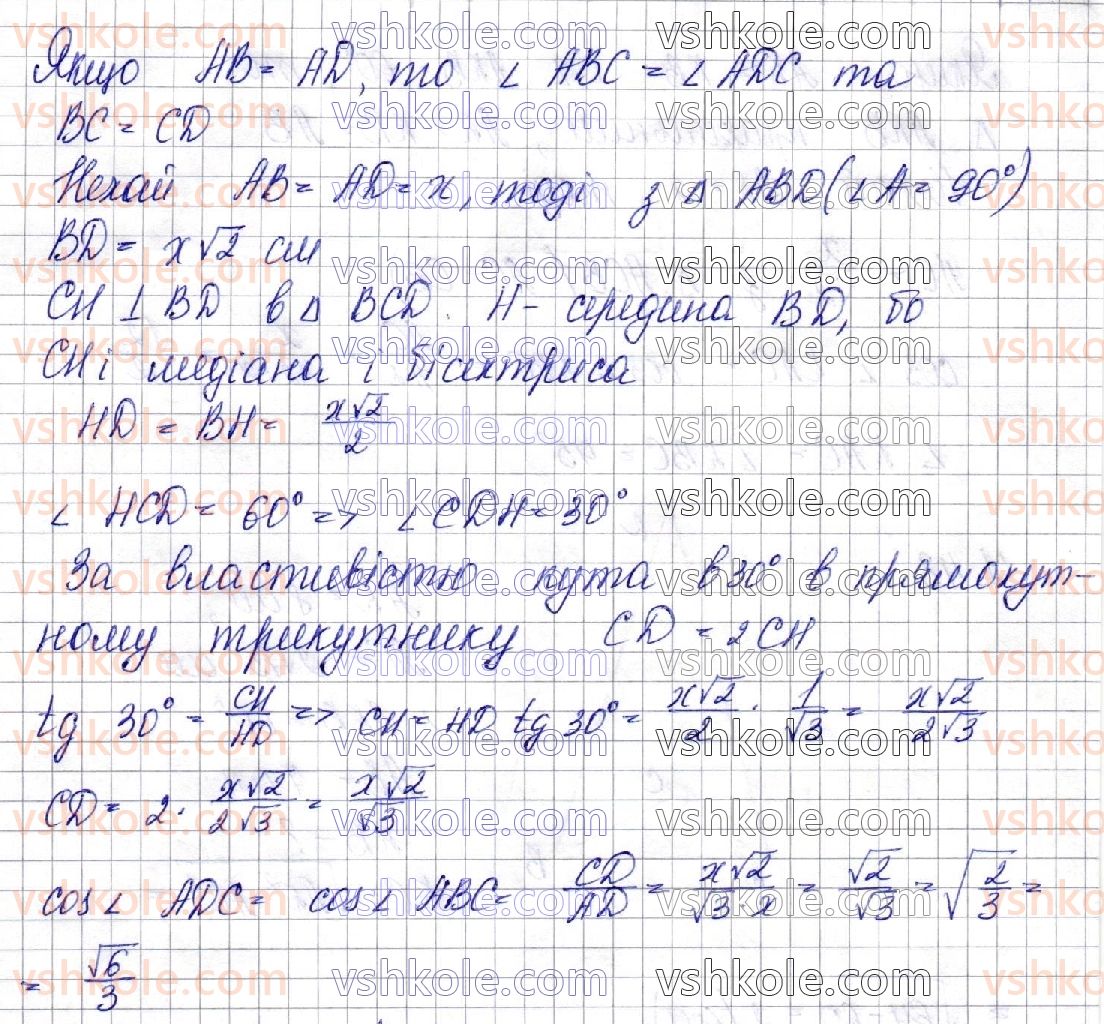 Якщо AB = AD, то ∠ ABC = ∠ ADC та
BC = CD
Нехай AB = AD = x, тоді з △ ABD (∠ A = 90°)
BD = x√2 см
CH ⊥ BD в △ BCD. H - середина BD, бо
CH і медіана і бісектриса
HD = BH = x√2/2
∠ HCD = 60° => ∠ CDH = 30°
За властивістю кута в 30° в прямокут-
ному трикутнику CD = 2CH
tg 30° = CH/HD => CH = HD tg 30° = x√2/2 · 1/√3 = x√2/2√3
CD = 2 · x√2/2√3 = x√2/√3
cos∠ ADC = cos∠ ABC = CD/AD = x√2/√3·x = √2/√3 = √(2/3) =
= √6/3